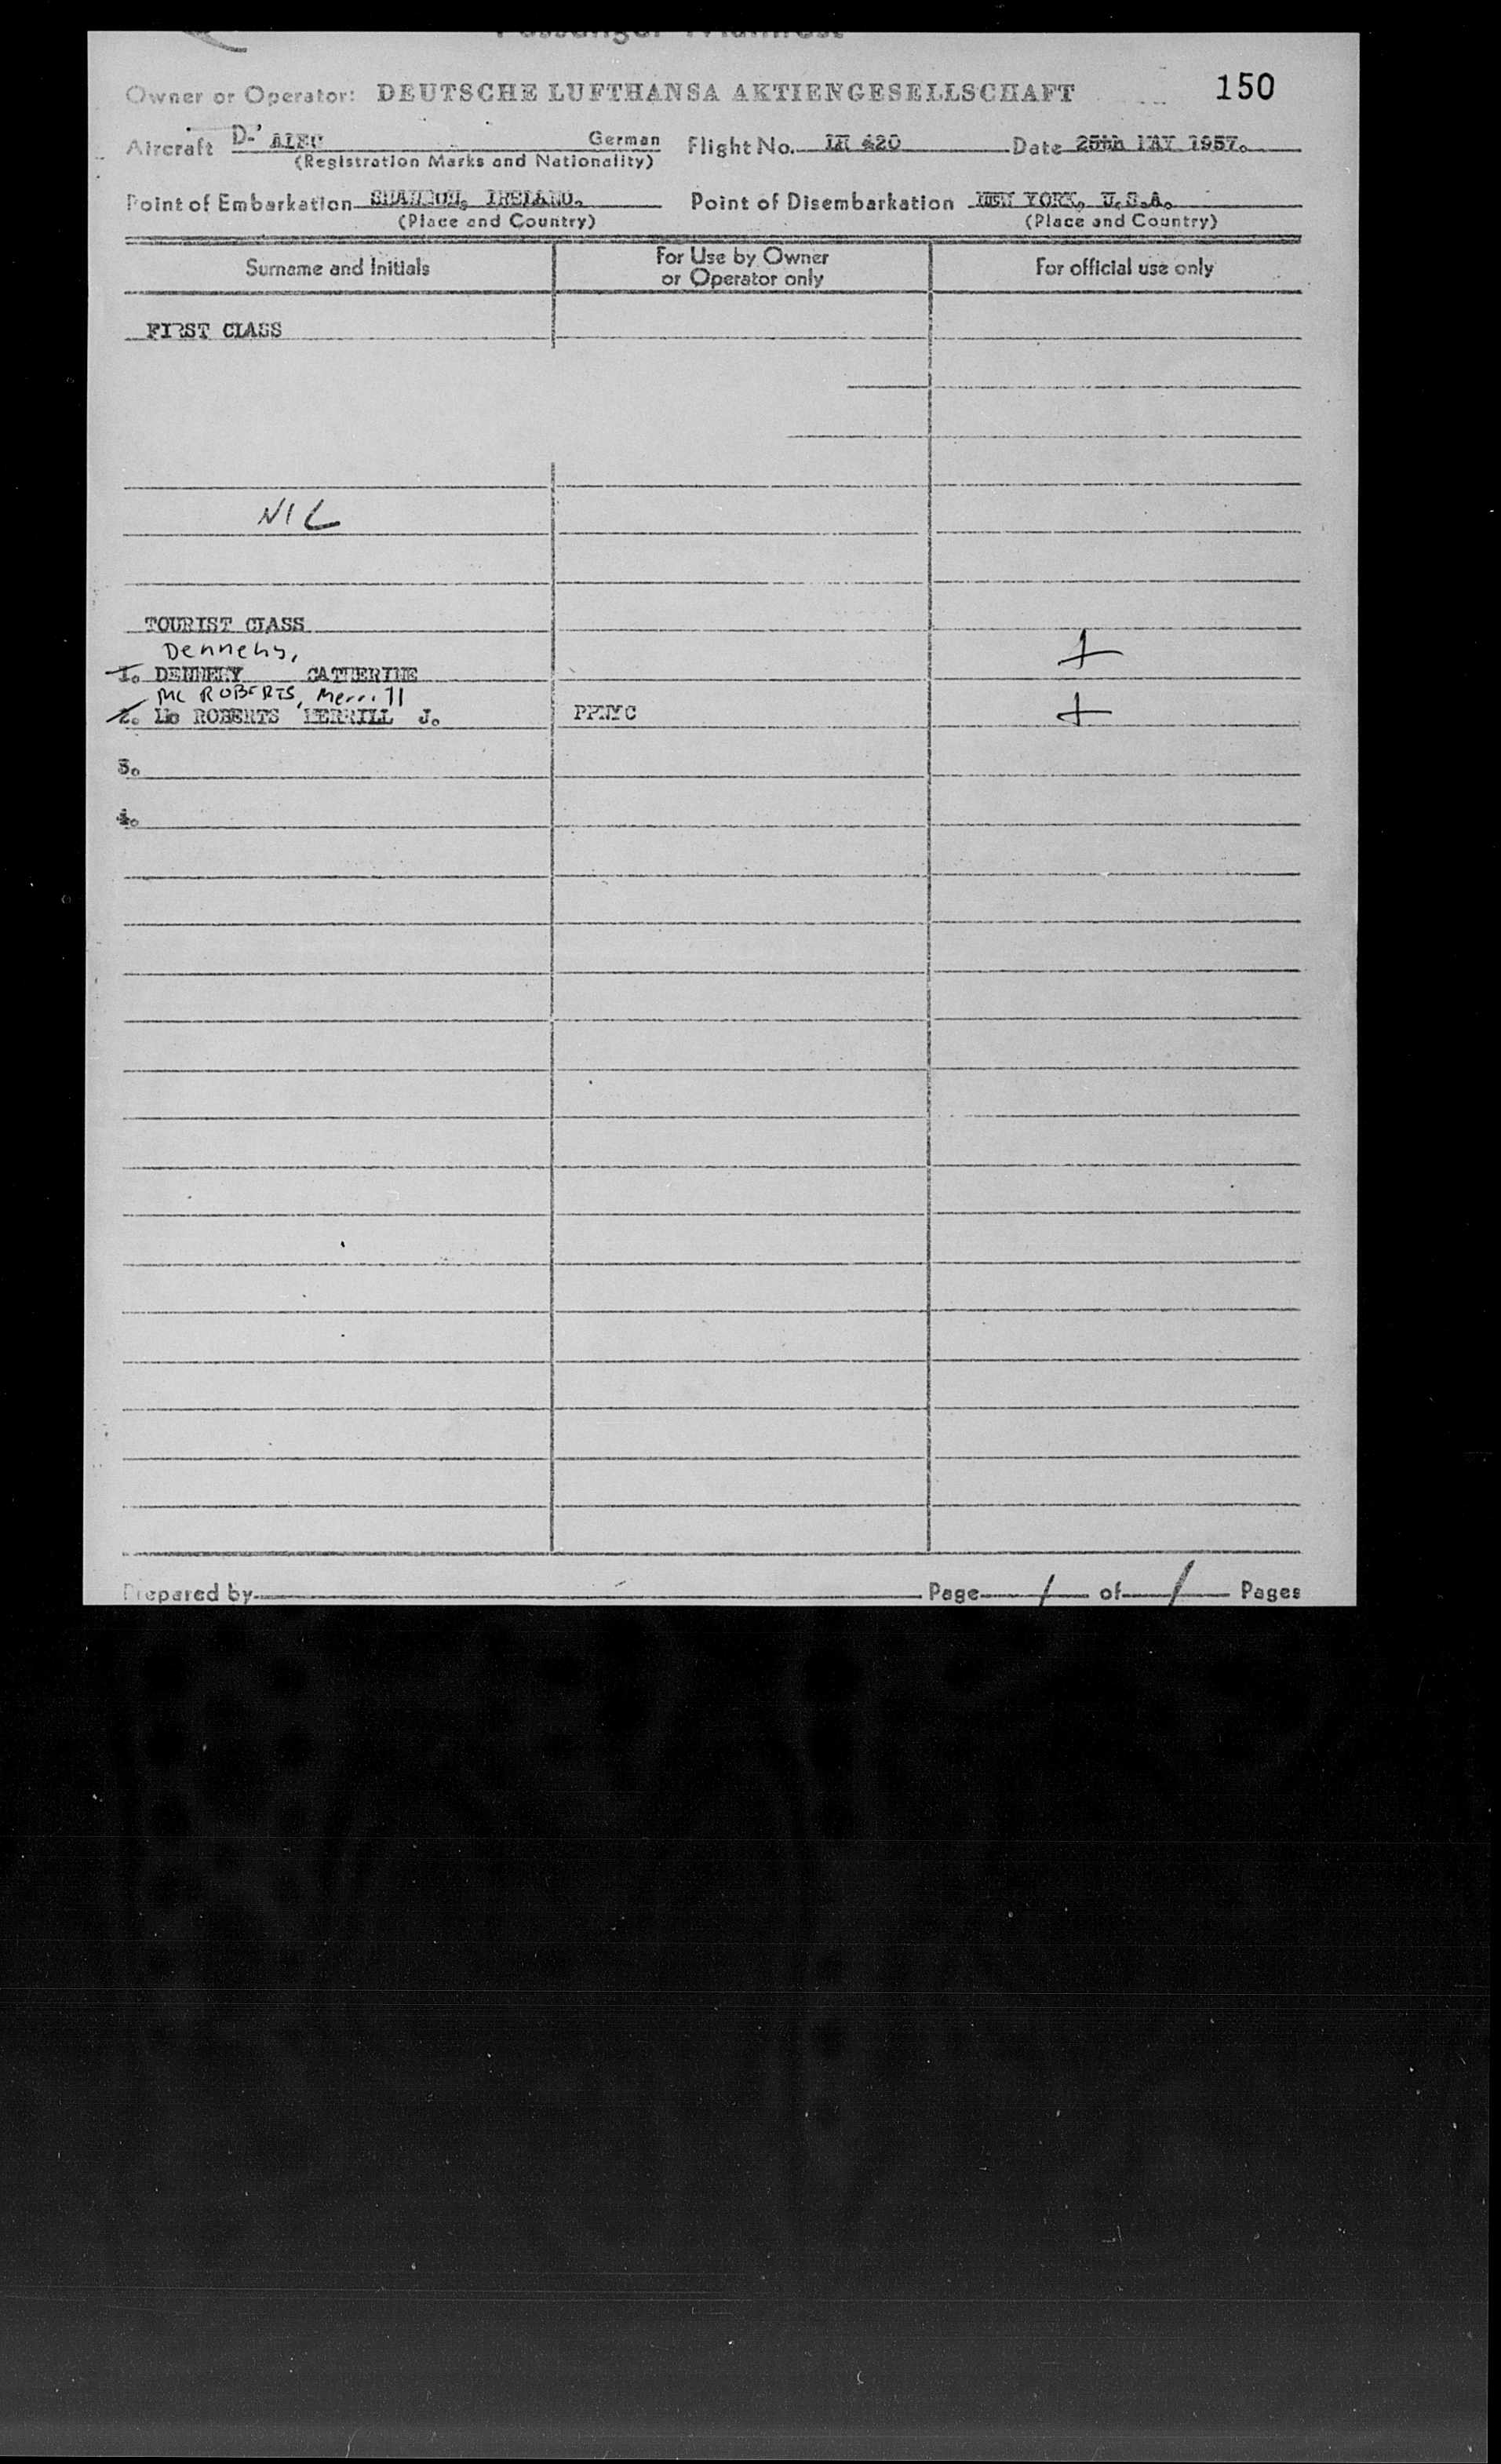 Passenger Manifest
Owner or Operator: DEUTSCHE LUFTHANSA AKTIENGESELLSCHAFT 150
Aircraft D- German Flight No. LH 420 Date 25th MAY 1957.
(Registration Marks and Nationality)
Point of Embarkation SHANNON, IRELAND. Point of Disembarkation NEW YORK, U.S.A.
(Place and Country) (Place and Country)
Surname and Initials For Use by Owner or Operator only For official use only
FIRST CLASS
NIL
TOURIST CLASS
Dennehy,
1. DENNEHY CATHERINE +
Mc ROBERTS, Merrill
2. Mc ROBERTS MERRILL J. PPNYC +
3.
4.
Prepared by Page 1 of 1 Pages